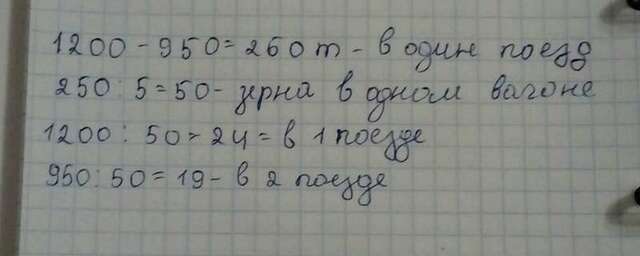 1200 - 950 = 260 т - в один поезд
250 : 5 = 50 - зерна в одном вагоне
1200 : 50 = 24 = в 1 поезде
950 : 50 = 19 - в 2 поезде